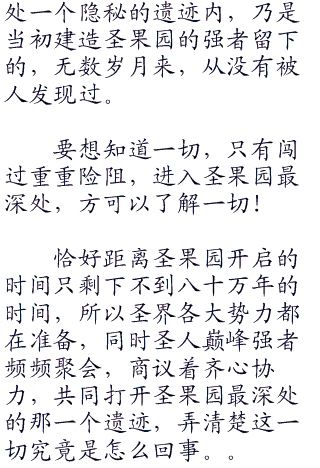 处一个隐秘的遗迹内，乃是
当初建造圣果园的强者留下
的，无数岁月来，从没有被
人发现过。
要想知道一切，只有闯
过重重险阻，进入圣果园最
深处，方可以了解一切！
恰好距离圣果园开启的
时间只剩下不到八十万年的
时间，所以圣界各大势力都
在准备，同时圣人巅峰强者
频频聚会，商议着齐心协
力，共同打开圣果园最深处
的那一个遗迹，弄清楚这一
切究竟是怎么回事。。